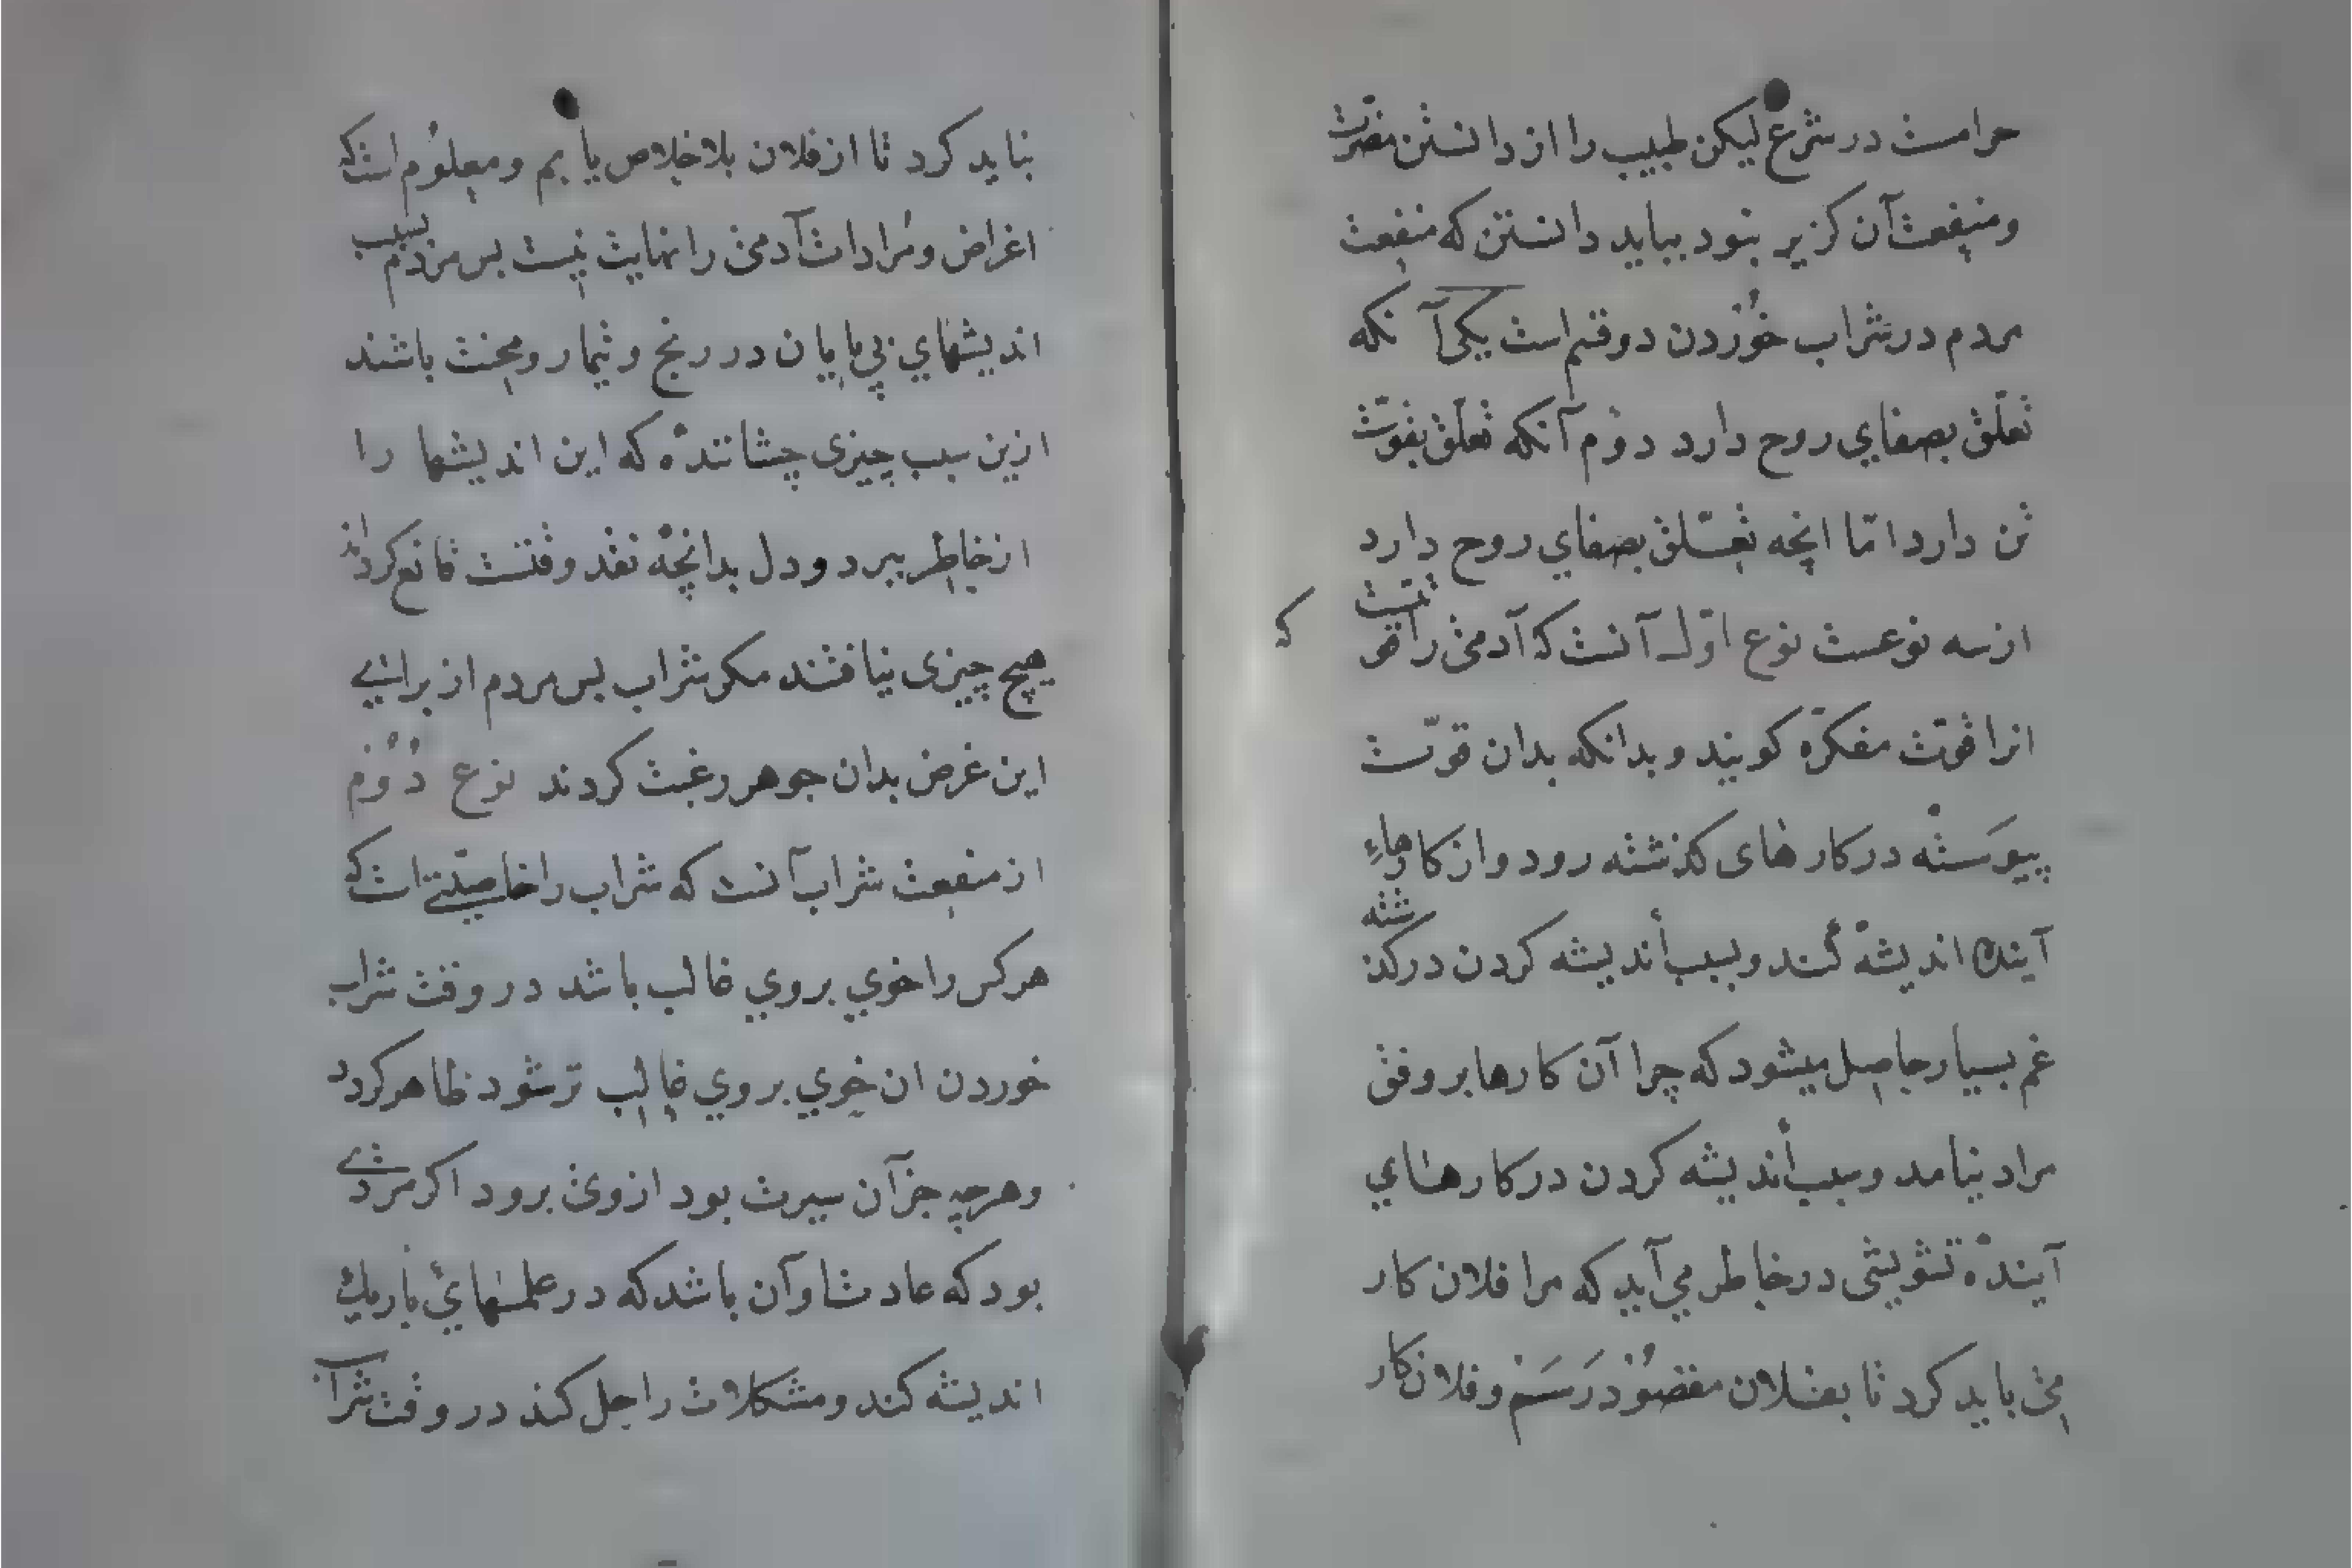 حرامست در شرع لیکن طبیب را از دانستن مضرت
و منفعت آن کزیر نبود بباید دانستن که منفعت
مردم در شراب خوُردن دو قسم است یکی آنکه
تعلّق بصفاي روح دارد دوُم آنکه تعلّق بقوّت
تن دارد امّا انچه تعلّق بصفاي روح دارد
از سه نوعست نوع اوّل آنست که آدمی را قوّتیست که
انرا قوّت مفکرّه کویند و بدانکه بدان قوّت
پیوَسته در کارهای کذشته رود و از کارهاءِ
آینده اندیشه کُند و بسبب أندیشه کردن در کذشته
غم بسیار حاصل میشود که چرا آن کارها بر وفق
مراد نیامد و سبب أندیشه کردن در کارهاي
آینده تشویشی در خاطر می آید که مرا فلان کار
می باید کرد تا بفلان مقصُود رَسَم و فلان کار
نباید کرد تا از فلان بلا خلاص یابم و معلوُم است که
اغراض و مُرادات آدمی را نهایت نیست بس مردم بسبب
اندیشهاي بی پایان در رنج و تیمار و محنت باشند
ازین سبب چیزی جستا که این اندیشها را
از خاطر ببرد و دل بدانچه نقد وقتست قانع کرداند
هیچ چیزی نیافتند مکر شراب بس مردم از براي
این غرض بدان جوهر رغبت کردند نوع دُوُم
از منفعت شراب آنست که شراب را خاصیّتی است که
هر کس را خوي بر وي غالب باشد در وقت شراب
خوردن ان خوي بر وي غالب تر شود ظاهر کردد
و هرچه جز آن سیرت بود از وی برود اکر مردي
بود که عادت او آن باشد که در علمهايُ باریک
اندیشه کند و مشکلات را حل کند در وقت شراب